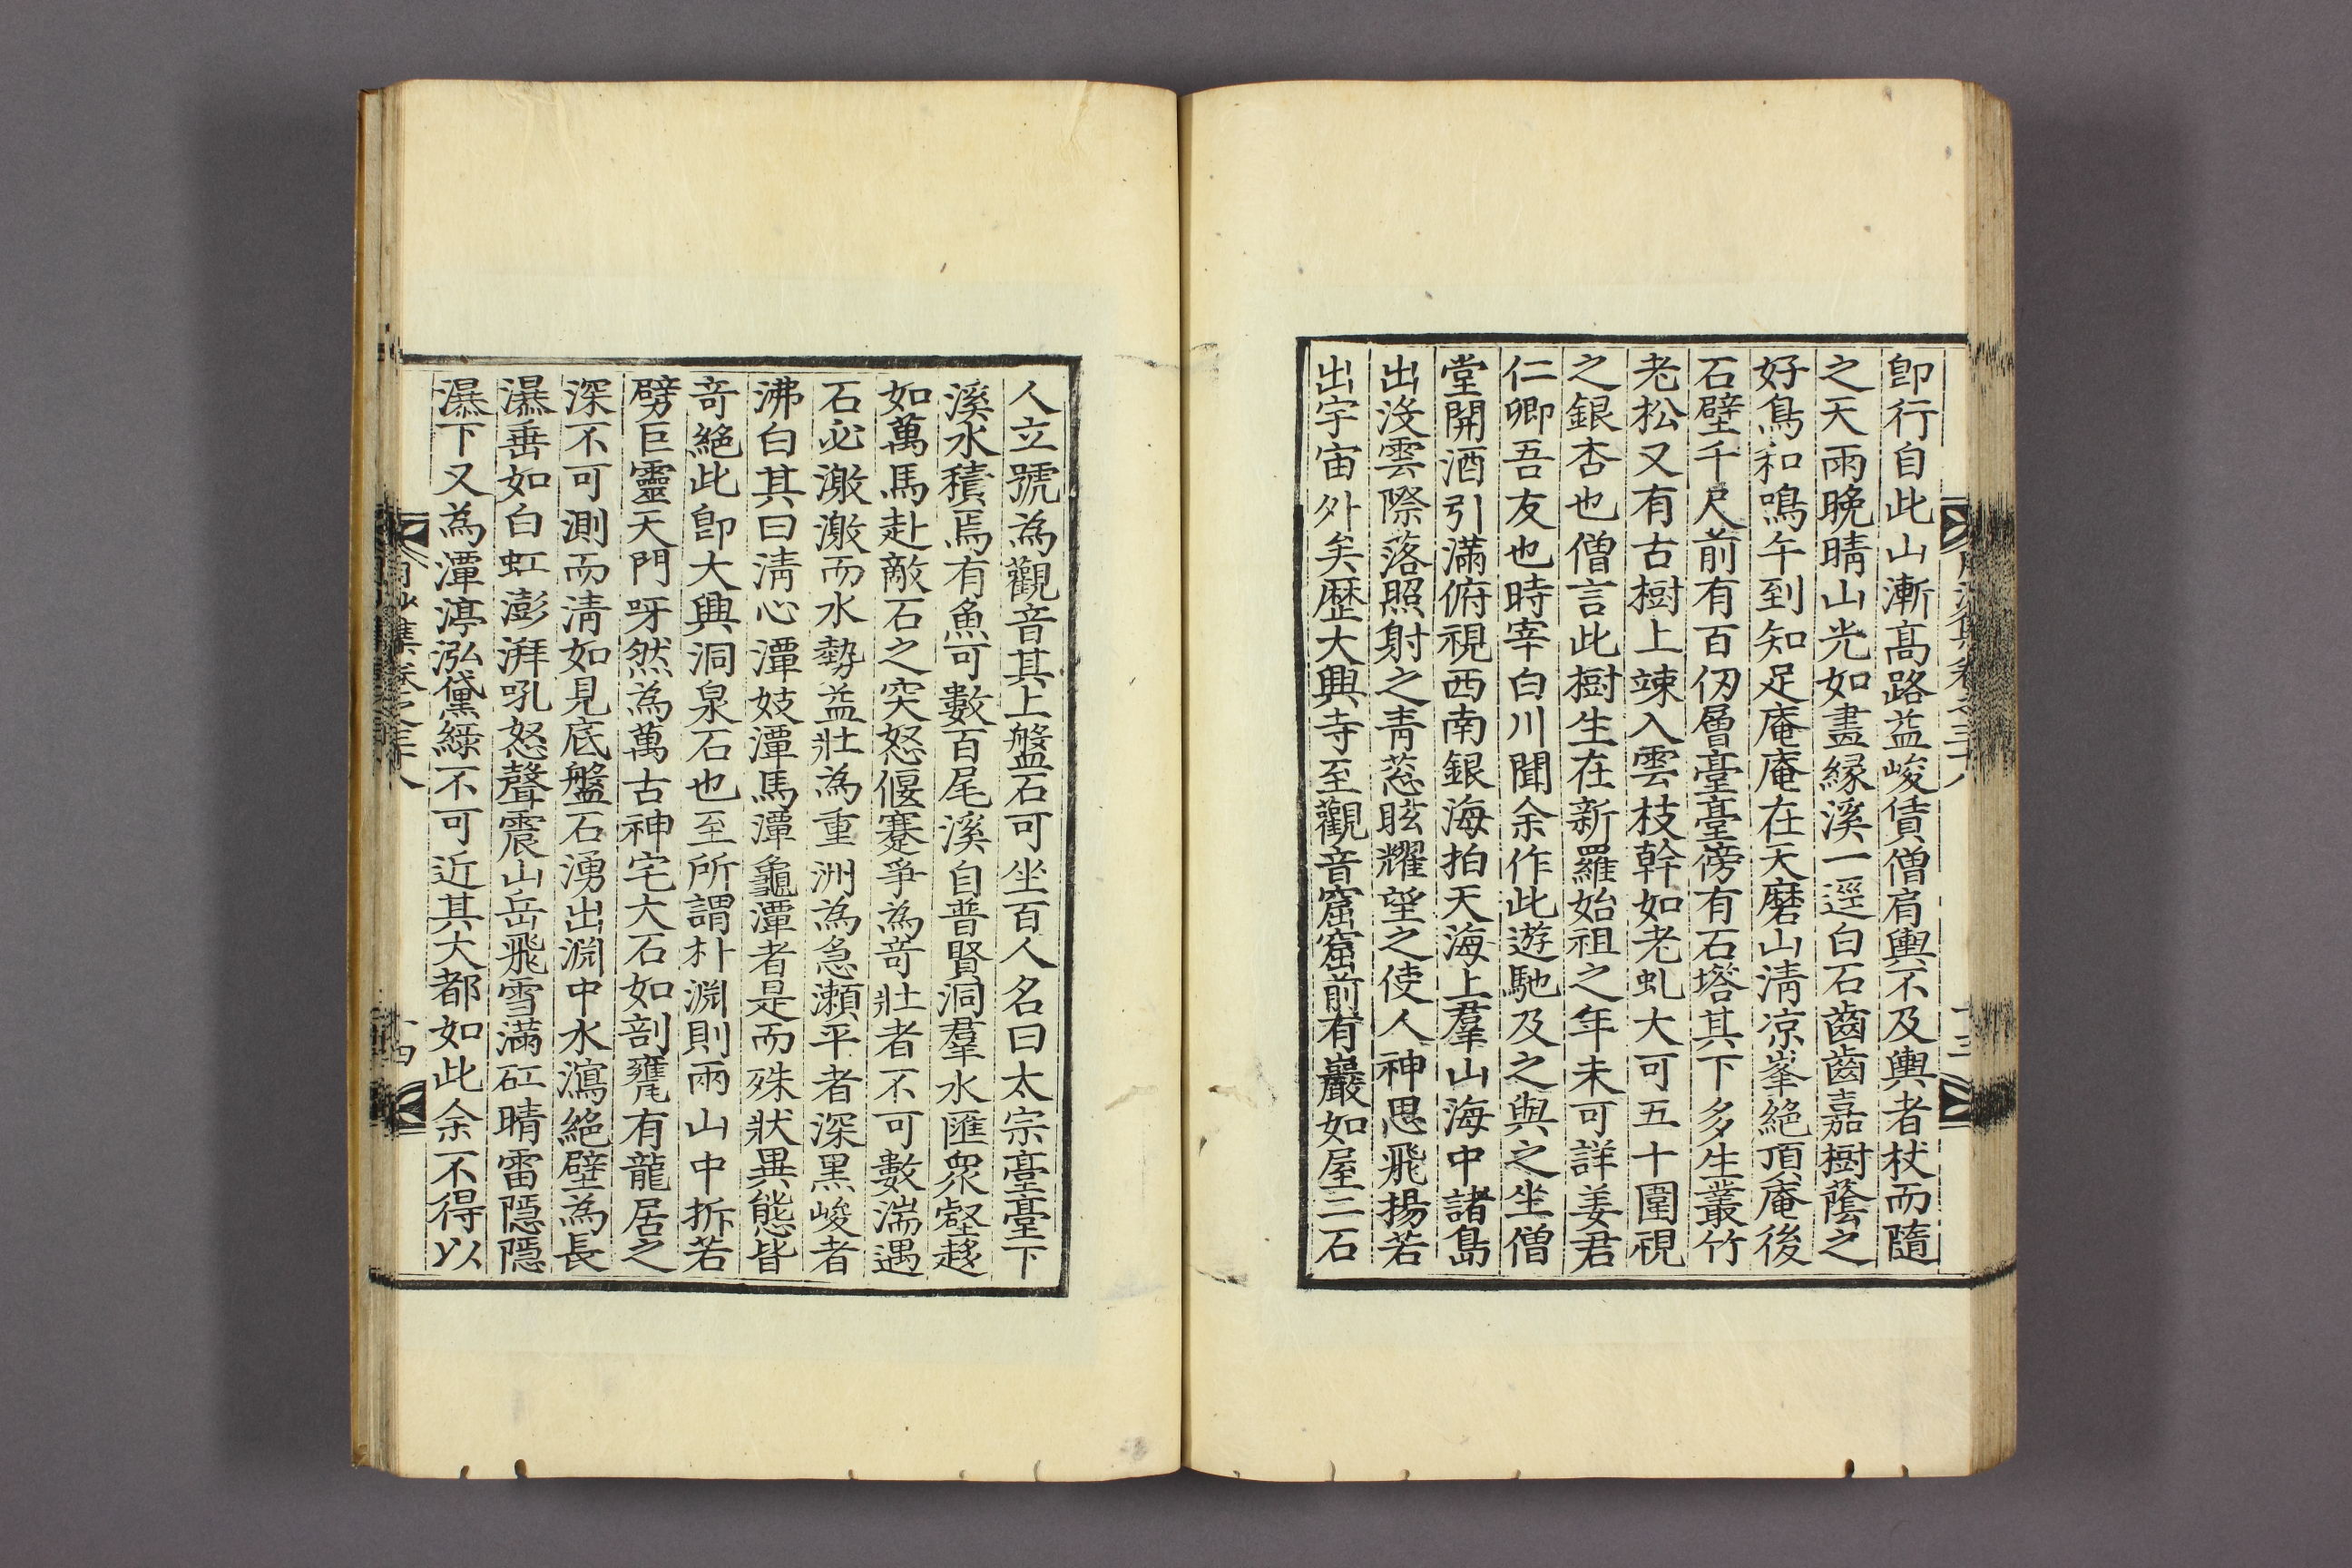 卽行自此山漸高路益峻賃僧肩輿不及輿者杖而隨
之天雨晚晴山光如畫緣溪一逕白石齒齒嘉樹蔭之
好鳥和鳴午到知足庵庵在天磨山淸凉峯絶頂庵後
石壁千尺前有百仞層臺臺傍有石塔其下多生叢竹
老松又有古樹上竦入雲枝幹如老虬大可五十圍視
之銀杏也僧言此樹生在新羅始祖之年未可詳姜君
仁卿吾友也時宰白川聞余作此遊馳及之與之坐僧
堂開酒引滿俯視西南銀海拍天海上羣山海中諸島
出沒雲際落照射之靑葱眩耀望之使人神思飛揚若
出宇宙外矣歷大興寺至觀音窟窟前有巖如屋三石
卷之三十八
十三
人立號爲觀音其上盤石可坐百人名曰太宗臺臺下
溪水積焉有魚可數百尾溪自普賢洞羣水匯衆壑趍
如萬馬赴敵石之突怒偃蹇爭爲奇壯者不可數湍遇
石必激激而水勢益壯爲重洲爲急瀨平者深黑峻者
沸白其曰淸心潭妓潭馬潭龜潭者是而殊狀異態皆
奇絶此卽大興洞泉石也至所謂朴淵則兩山中拆若
劈巨靈天門呀然爲萬古神宅大石如剖甕有龍居之
深不可測而淸如見底盤石湧出淵中水瀉絶壁爲長
瀑垂如白虹澎湃吼怒聲震山岳飛雪滿矼晴雷隱隱
瀑下又爲潭渟泓黛綠不可近其大都如此余不得以
月沙集卷之三十八
十四